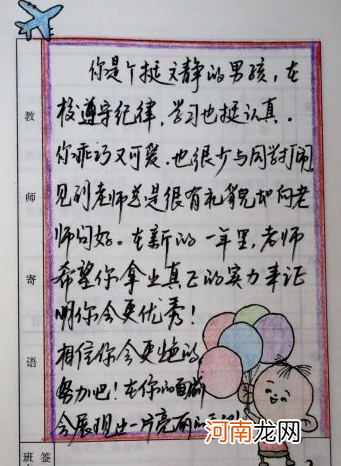 你是个挺文静的男孩，在
校遵守纪律，学习也挺认真。
你乖巧又可爱，也很少与同学打闹，
见到老师总是很有礼貌地向老
师问好。在新的一年里，老师
希望你拿出真正的实力来证
明你会更优秀！
相信你会更
努力吧！在你的面前
会展现出一片亮丽的
教
师
寄
语
签
班
河南龙网